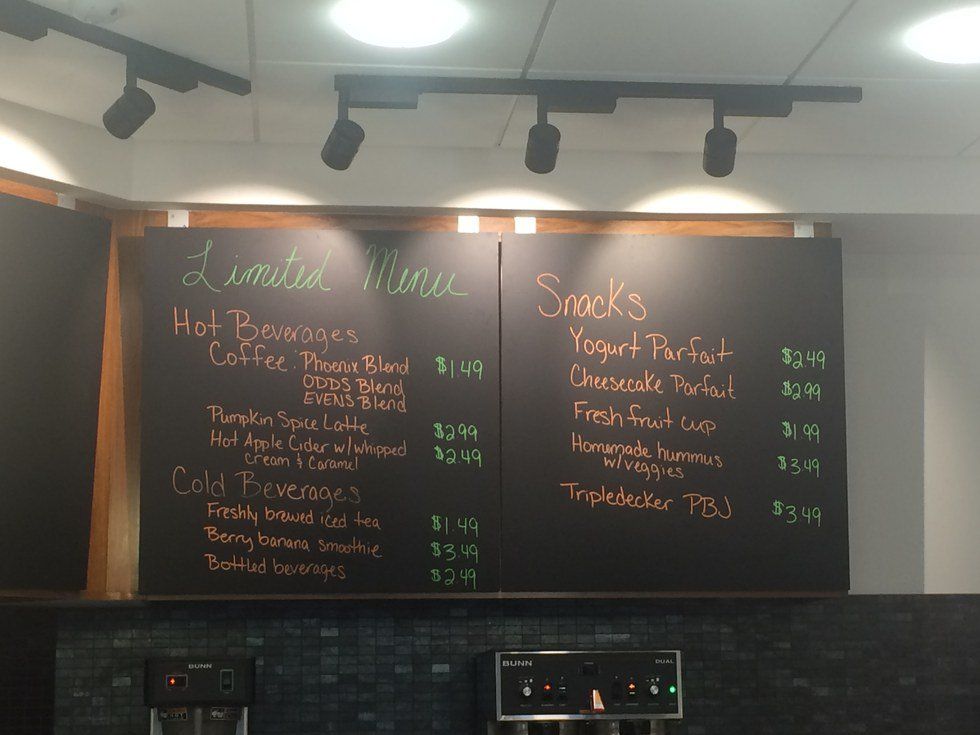 Limited Menu
Hot Beverages
Coffee: Phoenix Blend $1.49
ODDS Blend
EVENS Blend
Pumpkin Spice Latte $2.99
Hot Apple Cider w/whipped $2.49
cream & Caramel
Cold Beverages
Freshly brewed iced tea $1.49
Berry banana smoothie $3.49
Bottled beverages $2.49
Snacks
Yogurt Parfait $2.49
Cheesecake Parfait $2.99
Fresh fruit cup $1.99
Homemade hummus $3.49
w/veggies
Tripledecker PBJ $3.49
BUNN
BUNN DUAL